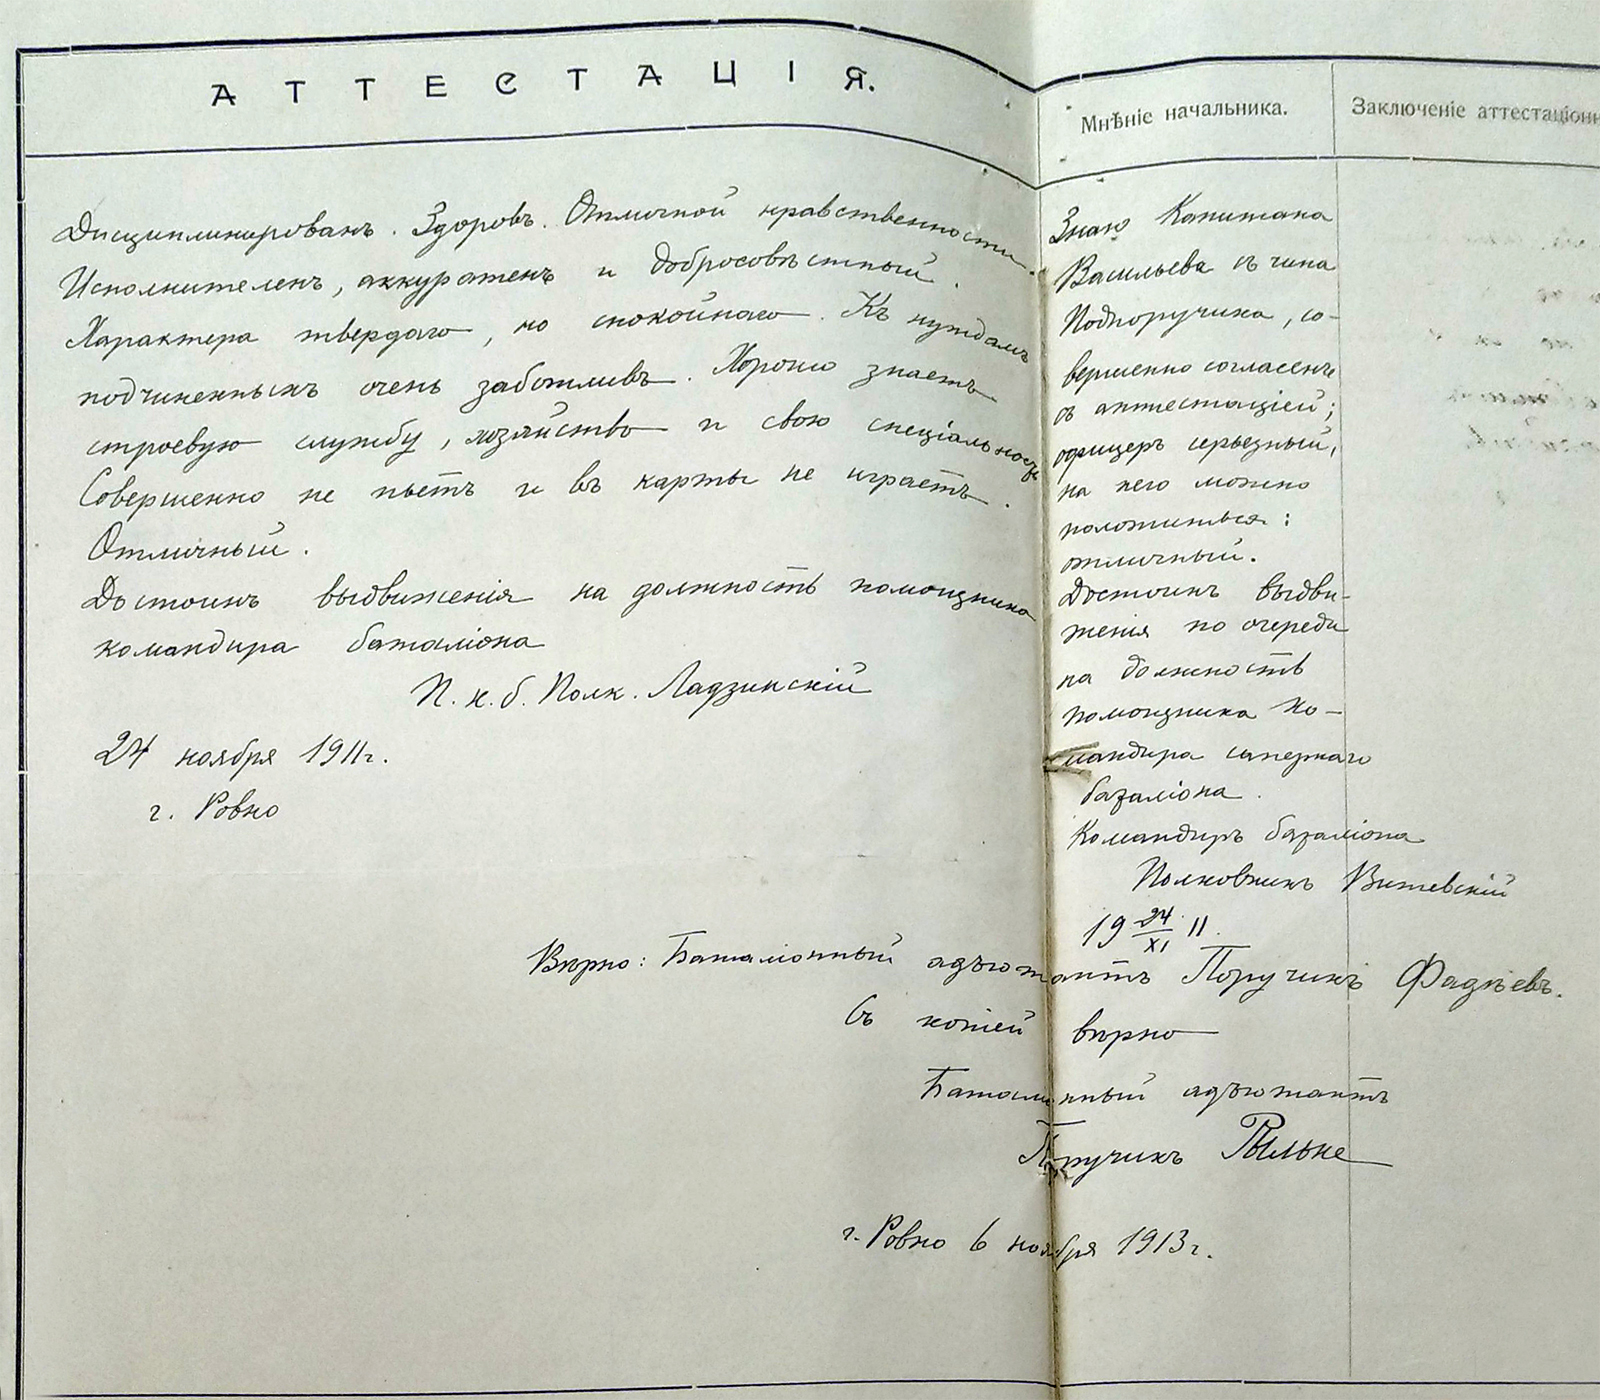 АТТЕСТАЦІЯ.
Дисциплинированъ. Здоровъ. Отличной нравственности.
Исполнителенъ, аккуратенъ и добросовѣстный.
Характера твердаго, но спокойнаго. Къ нуждамъ
подчиненныхъ очень заботливъ. Хорошо знаетъ
строевую службу, хозяйство и свою спеціальность
Совершенно не пьетъ и въ карты не играетъ.
Отличный.
Достоинъ выдвиженія на должность помощника
командира баталіона
П. к. б. Полк. Ладзинскій
24 ноября 1911г.
г. Ровно
Мнѣніе начальника.
Знаю Капитана
Васильева съ чина
Подпоручика, со-
вершенно согласенъ
съ аттестаціей;
офицеръ серьезный,
на него можно
положиться:
отличный.
Достоинъ выдви-
женія по очереди
на должность
помощника ко-
мандира сапернаго
баталіона.
Командиръ баталіона
Полковникъ
19 24/XI 11.
Вѣрно: Баталіонный адъютантъ Поручикъ Фадѣевъ.
Съ копіей вѣрно
Баталіонный адъютантъ
Поручикъ
г. Ровно 6 ноября 1913г.
Заключеніе